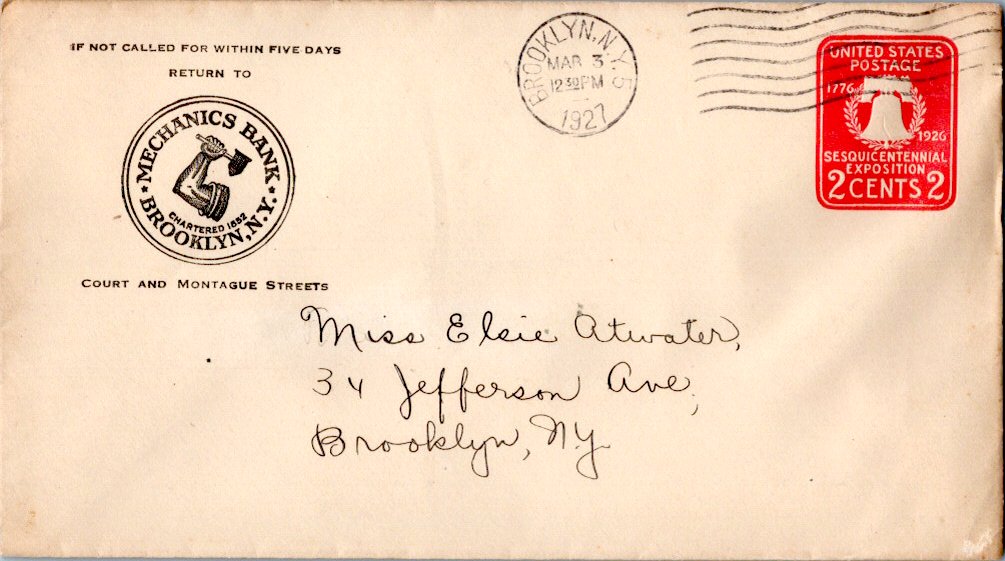 IF NOT CALLED FOR WITHIN FIVE DAYS
RETURN TO
★ MECHANICS BANK ★
CHARTERED 1852
BROOKLYN, N.Y.
COURT AND MONTAGUE STREETS
BROOKLYN, N.Y. 5
MAR 3
12 30 PM
1927
UNITED STATES
POSTAGE
1776
1926
SESQUICENTENNIAL
EXPOSITION
2 CENTS 2
Miss Elsie Atwater,
34 Jefferson Ave,
Brooklyn, NY.